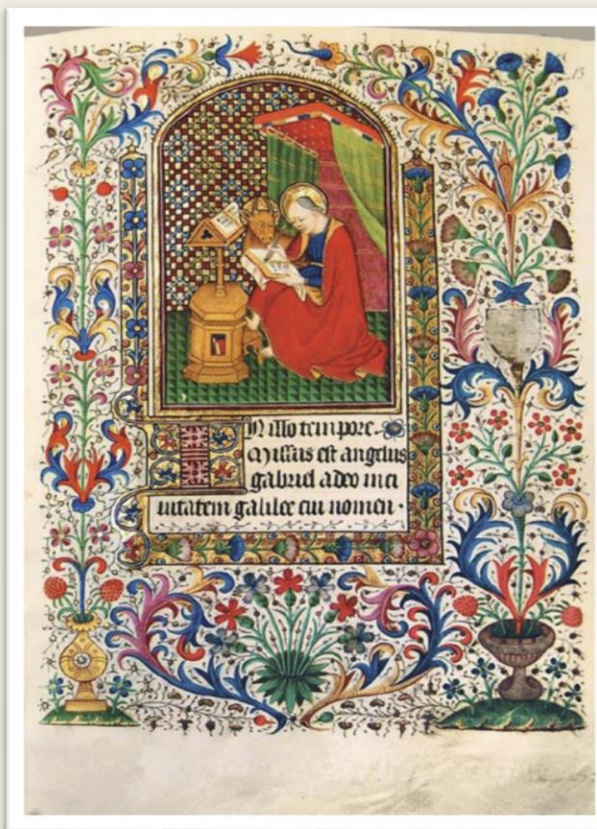 13
In illo tempore.
Missus est angelus
gabriel a deo in ci
uitatem galilee cui nomen ·